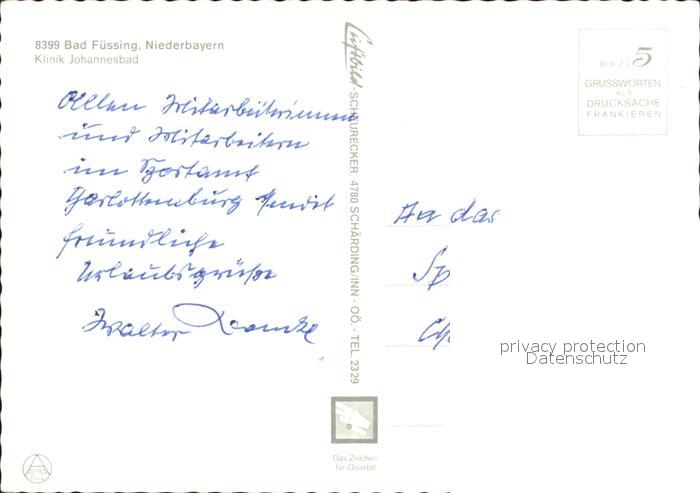 8399 Bad Füssing, Niederbayern
Klinik Johannesbad
Allen Mitarbeiterinnen
und Mitarbeitern
im Sportamt
Charlottenburg sendet
freundliche
Urlaubsgrüße
Walter
Luftbild-SCHEURECKER, 4780 SCHÄRDING/INN - OÖ. - TEL. 2329
BIS ZU 5
GRUSSWORTEN
ALS
DRUCKSACHE
FRANKIEREN
An das
Sp
Ch
privacy protection
Datenschutz
S
Das Zeichen
für Qualität